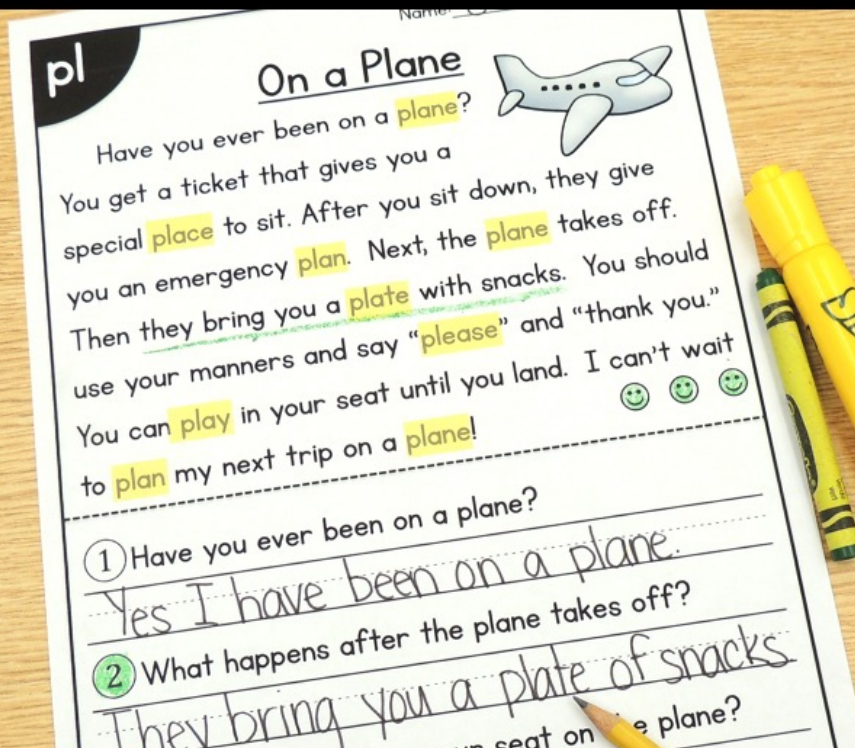 Name:
pl
On a Plane
Have you ever been on a plane?
You get a ticket that gives you a
special place to sit. After you sit down, they give
you an emergency plan. Next, the plane takes off.
Then they bring you a plate with snacks. You should
use your manners and say “please” and “thank you.”
You can play in your seat until you land. I can't wait
to plan my next trip on a plane!
1 Have you ever been on a plane?
Yes I have been on a plane.
2 What happens after the plane takes off?
They bring you a plate of snacks
seat on plane?